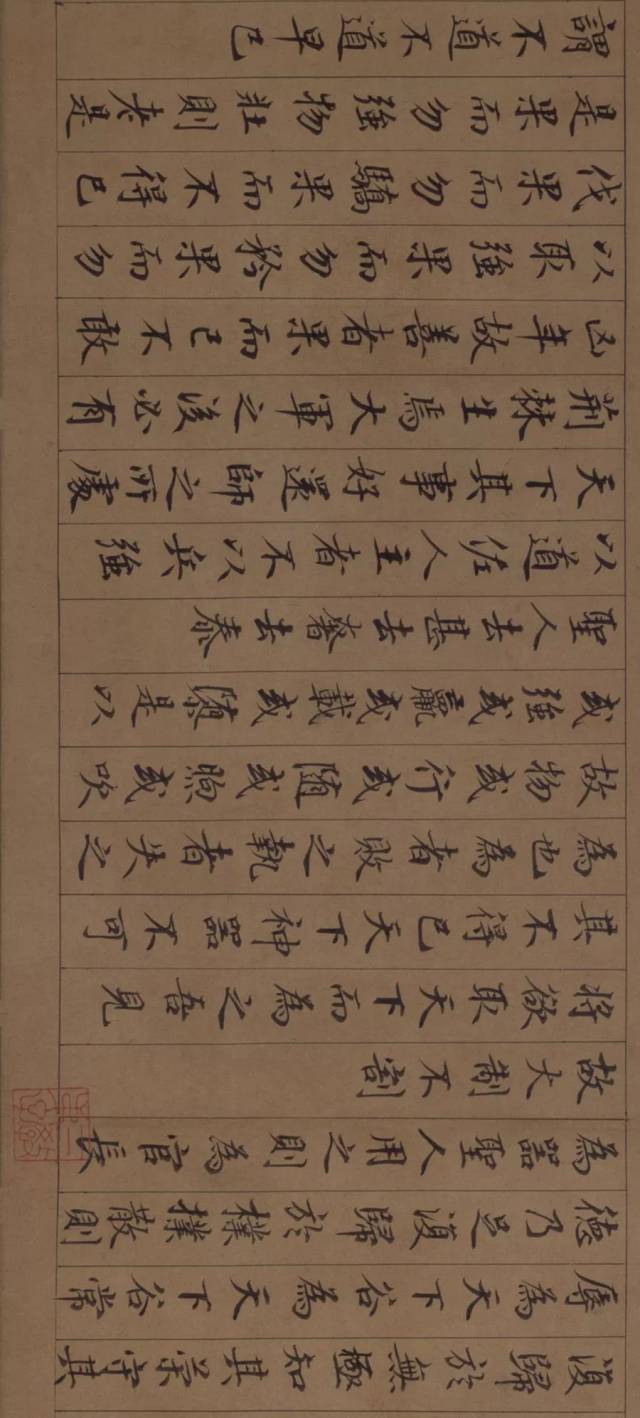 復歸於無極知其榮守其
辱為天下谷為天下谷常
德乃足復歸於樸樸散則
為器聖人用之則為官長
故大制不割
將欲取天下而為之吾見
其不得已天下神器不可
為也為者敗之執者失之
故物或行或随或煦或吹
或強或羸或載或隳是以
聖人去甚去奢去泰
以道佐人主者不以兵強
天下其事好還師之所處
荊棘生焉大軍之後必有
凶年故善者果而已不敢
以取強果而勿矜果而勿
伐果而勿驕果而不得已
是果而勿強物壯則老是
謂不道不道早已